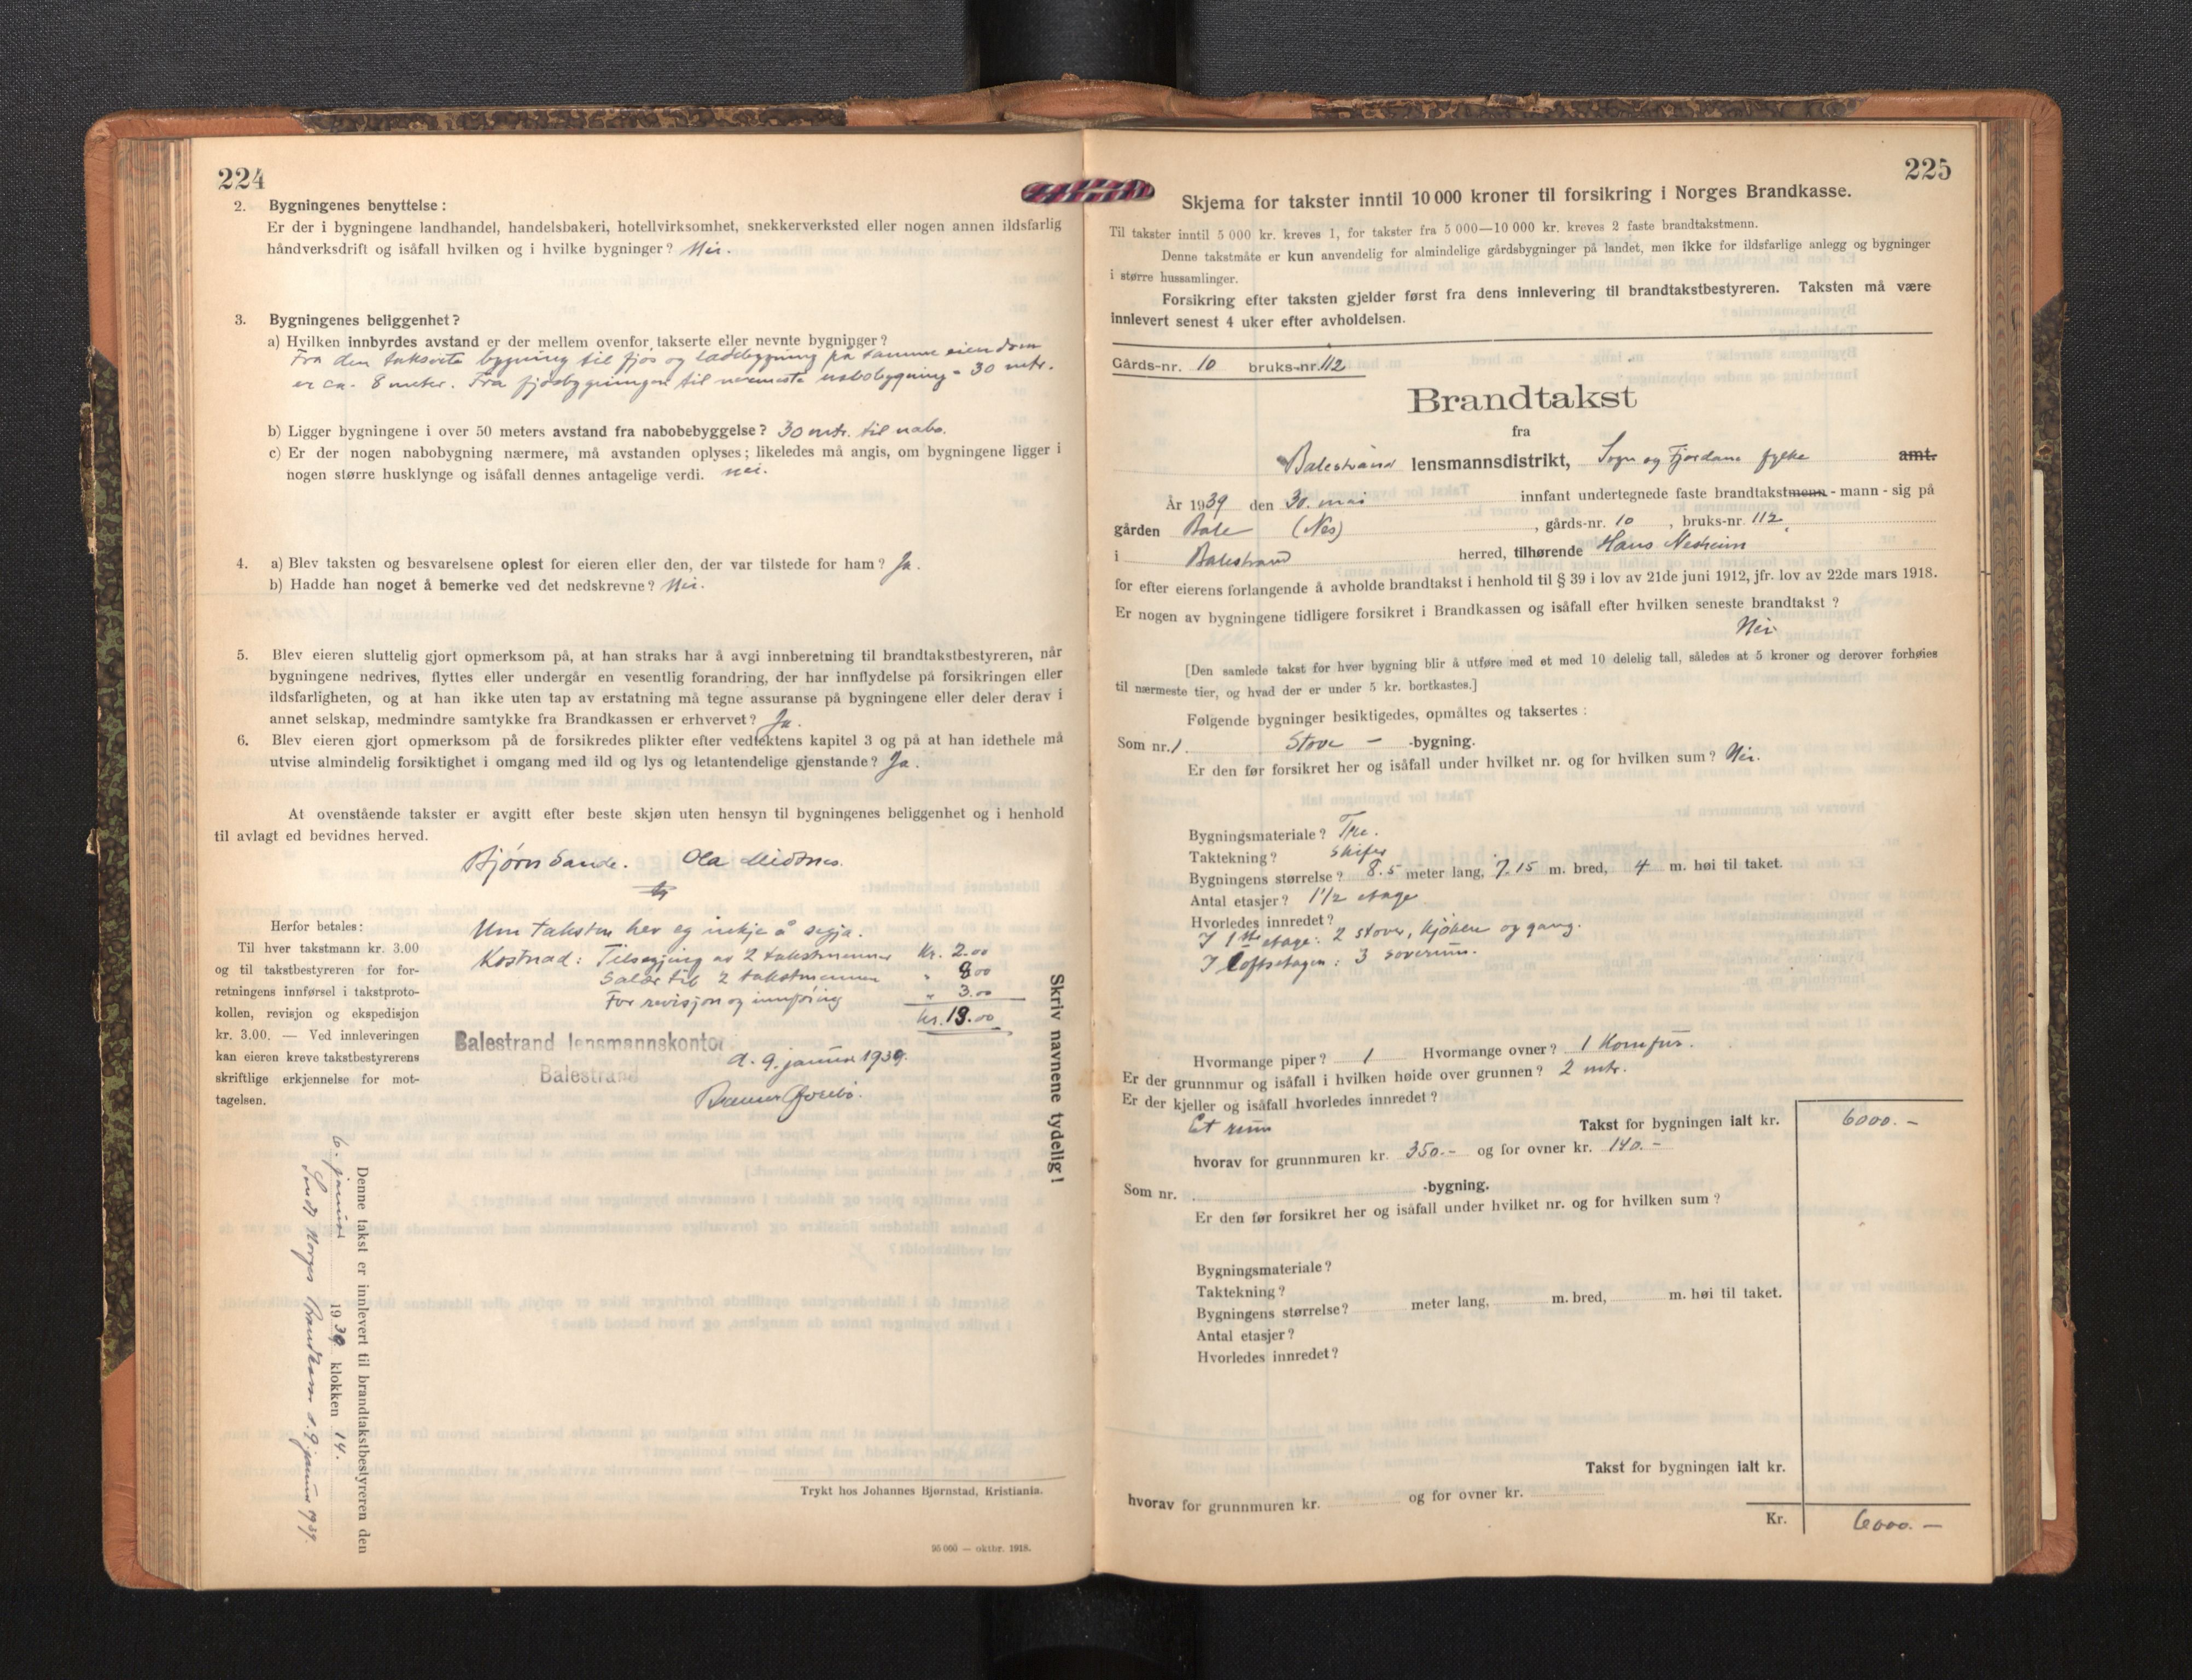 224
2. Bygningenes benyttelse :
Er der i bygningene landhandel, handelsbakeri, hotellvirksomhet, snekkerverksted eller nogen annen ildsfarlig
håndverksdrift og isåfall hvilken og i hvilke bygninger? Nei.
3. Bygningenes beliggenhet?
a) Hvilken innbyrdes avstand er der mellem ovenfor takserte eller nevnte bygninger?
Fra den takserte bygning til fjøs og ladebygning på samme eiendom
er ca. 8 meter. Fra fjøsbygningen til nærmeste nabobygning = 30 mtr.
b) Ligger bygningene i over 50 meters avstand fra nabobebyggelse? 30 mtr. til nabo.
c) Er der nogen nabobygning nærmere, må avstanden oplyses; likeledes må angis, om bygningene ligger i
nogen større husklynge og isåfall dennes antagelige verdi. nei.
4. a) Blev taksten og besvarelsene oplest for eieren eller den, der var tilstede for ham? Ja.
b) Hadde han noget å bemerke ved det nedskrevne? Nei.
5. Blev eieren sluttelig gjort opmerksom på, at han straks har å avgi innberetning til brandtakstbestyreren, når
bygningene nedrives, flyttes eller undergår en vesentlig forandring, der har innflydelse på forsikringen eller
ildsfarligheten, og at han ikke uten tap av erstatning må tegne assuranse på bygningene eller deler derav i
annet selskap, medmindre samtykke fra Brandkassen er erhvervet? Ja.
6. Blev eieren gjort opmerksom på de forsikredes plikter efter vedtektens kapitel 3 og på at han idethele må
utvise almindelig forsiktighet i omgang med ild og lys og letantendelige gjenstande? Ja.
At ovenstående takster er avgitt efter beste skjøn uten hensyn til bygningenes beliggenhet og i henhold
til avlagt ed bevidnes herved.
Bjørn Sande. Ola Midtnes.
Herfor betales:
Til hver takstmann kr. 3.00
og til takstbestyreren for for-
retningens innførsel i takstproto-
kollen, revisjon og ekspedisjon
kr. 3.00. — Ved innleveringen
kan eieren kreve takstbestyrerens
skriftlige erkjennelse for mot-
tagelsen.
Um taksten hev eg inkje å segja.
Kostnad: Tilsegjing av 2 takstmenner Kr. 2.00
Salær til 2 takstmennen " 8.00
For revisjon og innføring " 3.00
Kr. 13.00
Balestrand lensmannskontor
Balestrand
d. 9. januar 1939.
Skriv navnene tydelig!
Denne takst er innlevert til brandtakstbestyreren den
6. januar 1939 klokken 14.
Sendt Norges Brandkasse d. 9 januar 1939.
Trykt hos Johannes Bjørnstad, Kristiania.
95 000 — oktbr. 1918.
225
Skjema for takster inntil 10 000 kroner til forsikring i Norges Brandkasse.
Til takster inntil 5 000 kr. kreves 1, for takster fra 5 000—10 000 kr. kreves 2 faste brandtakstmenn.
Denne takstmåte er kun anvendelig for almindelige gårdsbygninger på landet, men ikke for ildsfarlige anlegg og bygninger
i større hussamlinger.
Forsikring efter taksten gjelder først fra dens innlevering til brandtakstbestyreren. Taksten må være
innlevert senest 4 uker efter avholdelsen.
Gårds-nr. 10 bruks-nr. 112
Brandtakst
fra
Balestrand lensmannsdistrikt, Sogn og Fjordane fylke amt.
År 1939 den 30. mai innfant undertegnede faste brandtakstmenn - mann - sig på
gården Bale (Nes), gårds-nr. 10, bruks-nr. 112,
i Balestrand herred, tilhørende Hans Nesheim
for efter eierens forlangende å avholde brandtakst i henhold til § 39 i lov av 21de juni 1912, jfr. lov av 22de mars 1918.
Er nogen av bygningene tidligere forsikret i Brandkassen og isåfall efter hvilken seneste brandtakst?
Nei
[Den samlede takst for hver bygning blir å utføre med et med 10 delelig tall, således at 5 kroner og derover forhøies
til nærmeste tier, og hvad der er under 5 kr. bortkastes.]
Følgende bygninger besiktigedes, opmåltes og taksertes :
Som nr. 1. Stove - -bygning.
Er den før forsikret her og isåfall under hvilket nr. og for hvilken sum? Nei.
Bygningsmateriale? Tre.
Taktekning? Skifer
Bygningens størrelse? 8.5 meter lang, 7.15 m. bred, 4 m. høi til taket.
Antal etasjer? 1 1/2 etage
Hvorledes innredet?
I 1ste etage: 2 stover, kjøken og gang.
I Loftsetagen: 3 soverum.
Hvormange piper? 1 Hvormange ovner? 1 Komfur.
Er der grunnmur og isåfall i hvilken høide over grunnen? 2 mtr.
Er der kjeller og isåfall hvorledes innredet?
Et rum
Takst for bygningen ialt kr. 6000.-
hvorav for grunnmuren kr. 350.- og for ovner kr. 140.-
Som nr. -bygning.
Er den før forsikret her og isåfall under hvilket nr. og for hvilken sum?
Bygningsmateriale?
Taktekning?
Bygningens størrelse? meter lang, m. bred, m. høi til taket.
Antal etasjer?
Hvorledes innredet?
Takst for bygningen ialt kr.
hvorav for grunnmuren kr. og for ovner kr.
Kr. 6000.-